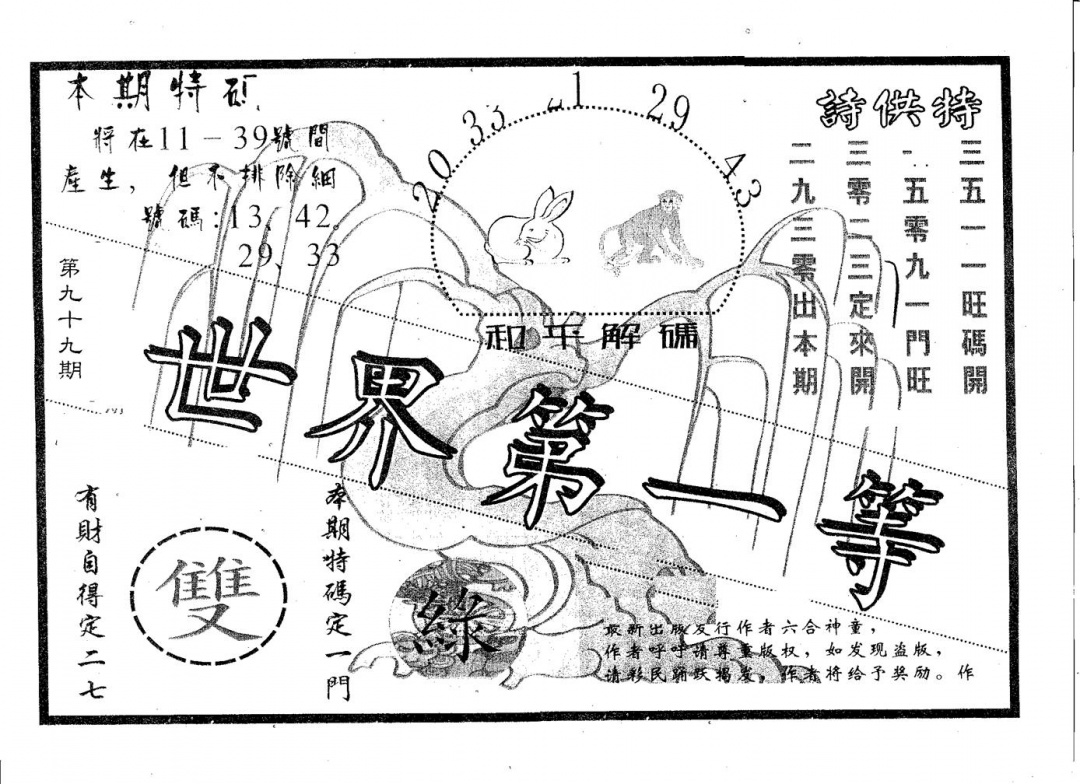 本期特碼
將在11－39號間
產生，但不排除細
號碼：13、42。
29、33
第九十九期
20 33 1 29 43
和平解碼
特供詩
三五一一旺碼開
五零九一門旺
三零二三定來開
二九三零出本期
世界第一等
本期特碼定一門
有財自得定二七
雙
綠
最新出版发行作者六合神童，
作者呼呼请尊重版权，如发现盗版，
请彩民踊跃揭发，作者将给予奖励。作